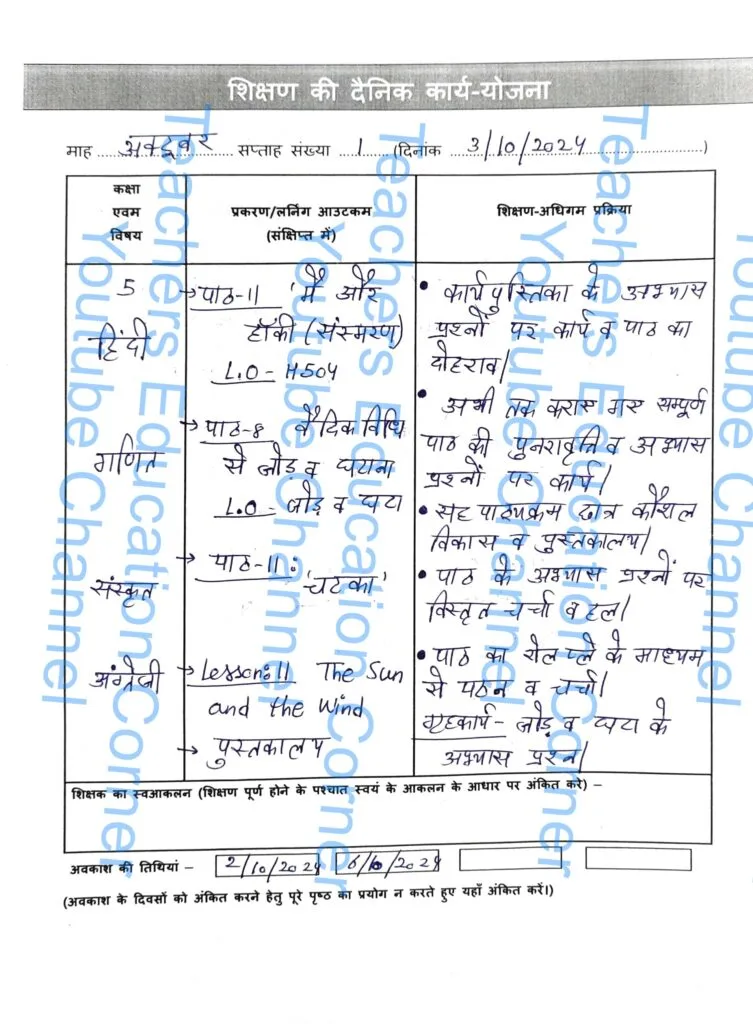 शिक्षण की दैनिक कार्य-योजना
माह अक्टूबर सप्ताह संख्या 1 (दिनांक 3/10/2024)
कक्षा
एवम
विषय
प्रकरण/लर्निंग आउटकम
(संक्षिप्त में)
शिक्षण-अधिगम प्रक्रिया
5
हिंदी
→ पाठ-11 'मैं और
हॉकी (संस्मरण)
L.O - H504
• कार्यपुस्तिका के अभ्यास
प्रश्नों पर कार्य व पाठ का
दोहराव।
गणित
→ पाठ-8 वैदिक विधि
से जोड़ व घटाना
L.O - जोड़ व घटा
• अभी तक कराए गए सम्पूर्ण
पाठ की पुनरावृत्ति व अभ्यास
प्रश्नों पर कार्य।
• सह पाठ्यक्रम छात्र कौशल
विकास व पुस्तकालय।
संस्कृत
→ पाठ-11:
'चटका'
• पाठ के अभ्यास प्रश्नों पर
विस्तृत चर्चा व हल।
अंग्रेजी
→ Lesson:11 The Sun
and the Wind
→ पुस्तकालय
• पाठ का रोल प्ले के माध्यम
से पठन व चर्चा।
गृहकार्य - जोड़ व घटा के
अभ्यास प्रश्न।
शिक्षक का स्वआकलन (शिक्षण पूर्ण होने के पश्चात स्वयं के आकलन के आधार पर अंकित करे) –
अवकाश की तिथियां – 2/10/2024 6/10/2024
(अवकाश के दिवसों को अंकित करने हेतु पूरे पृष्ठ का प्रयोग न करते हुए यहाँ अंकित करें।)
Teachers Education Corner
Youtube Channel
Teachers Education Corner
Youtube Channel
Teachers Education Corner
Youtube Channel